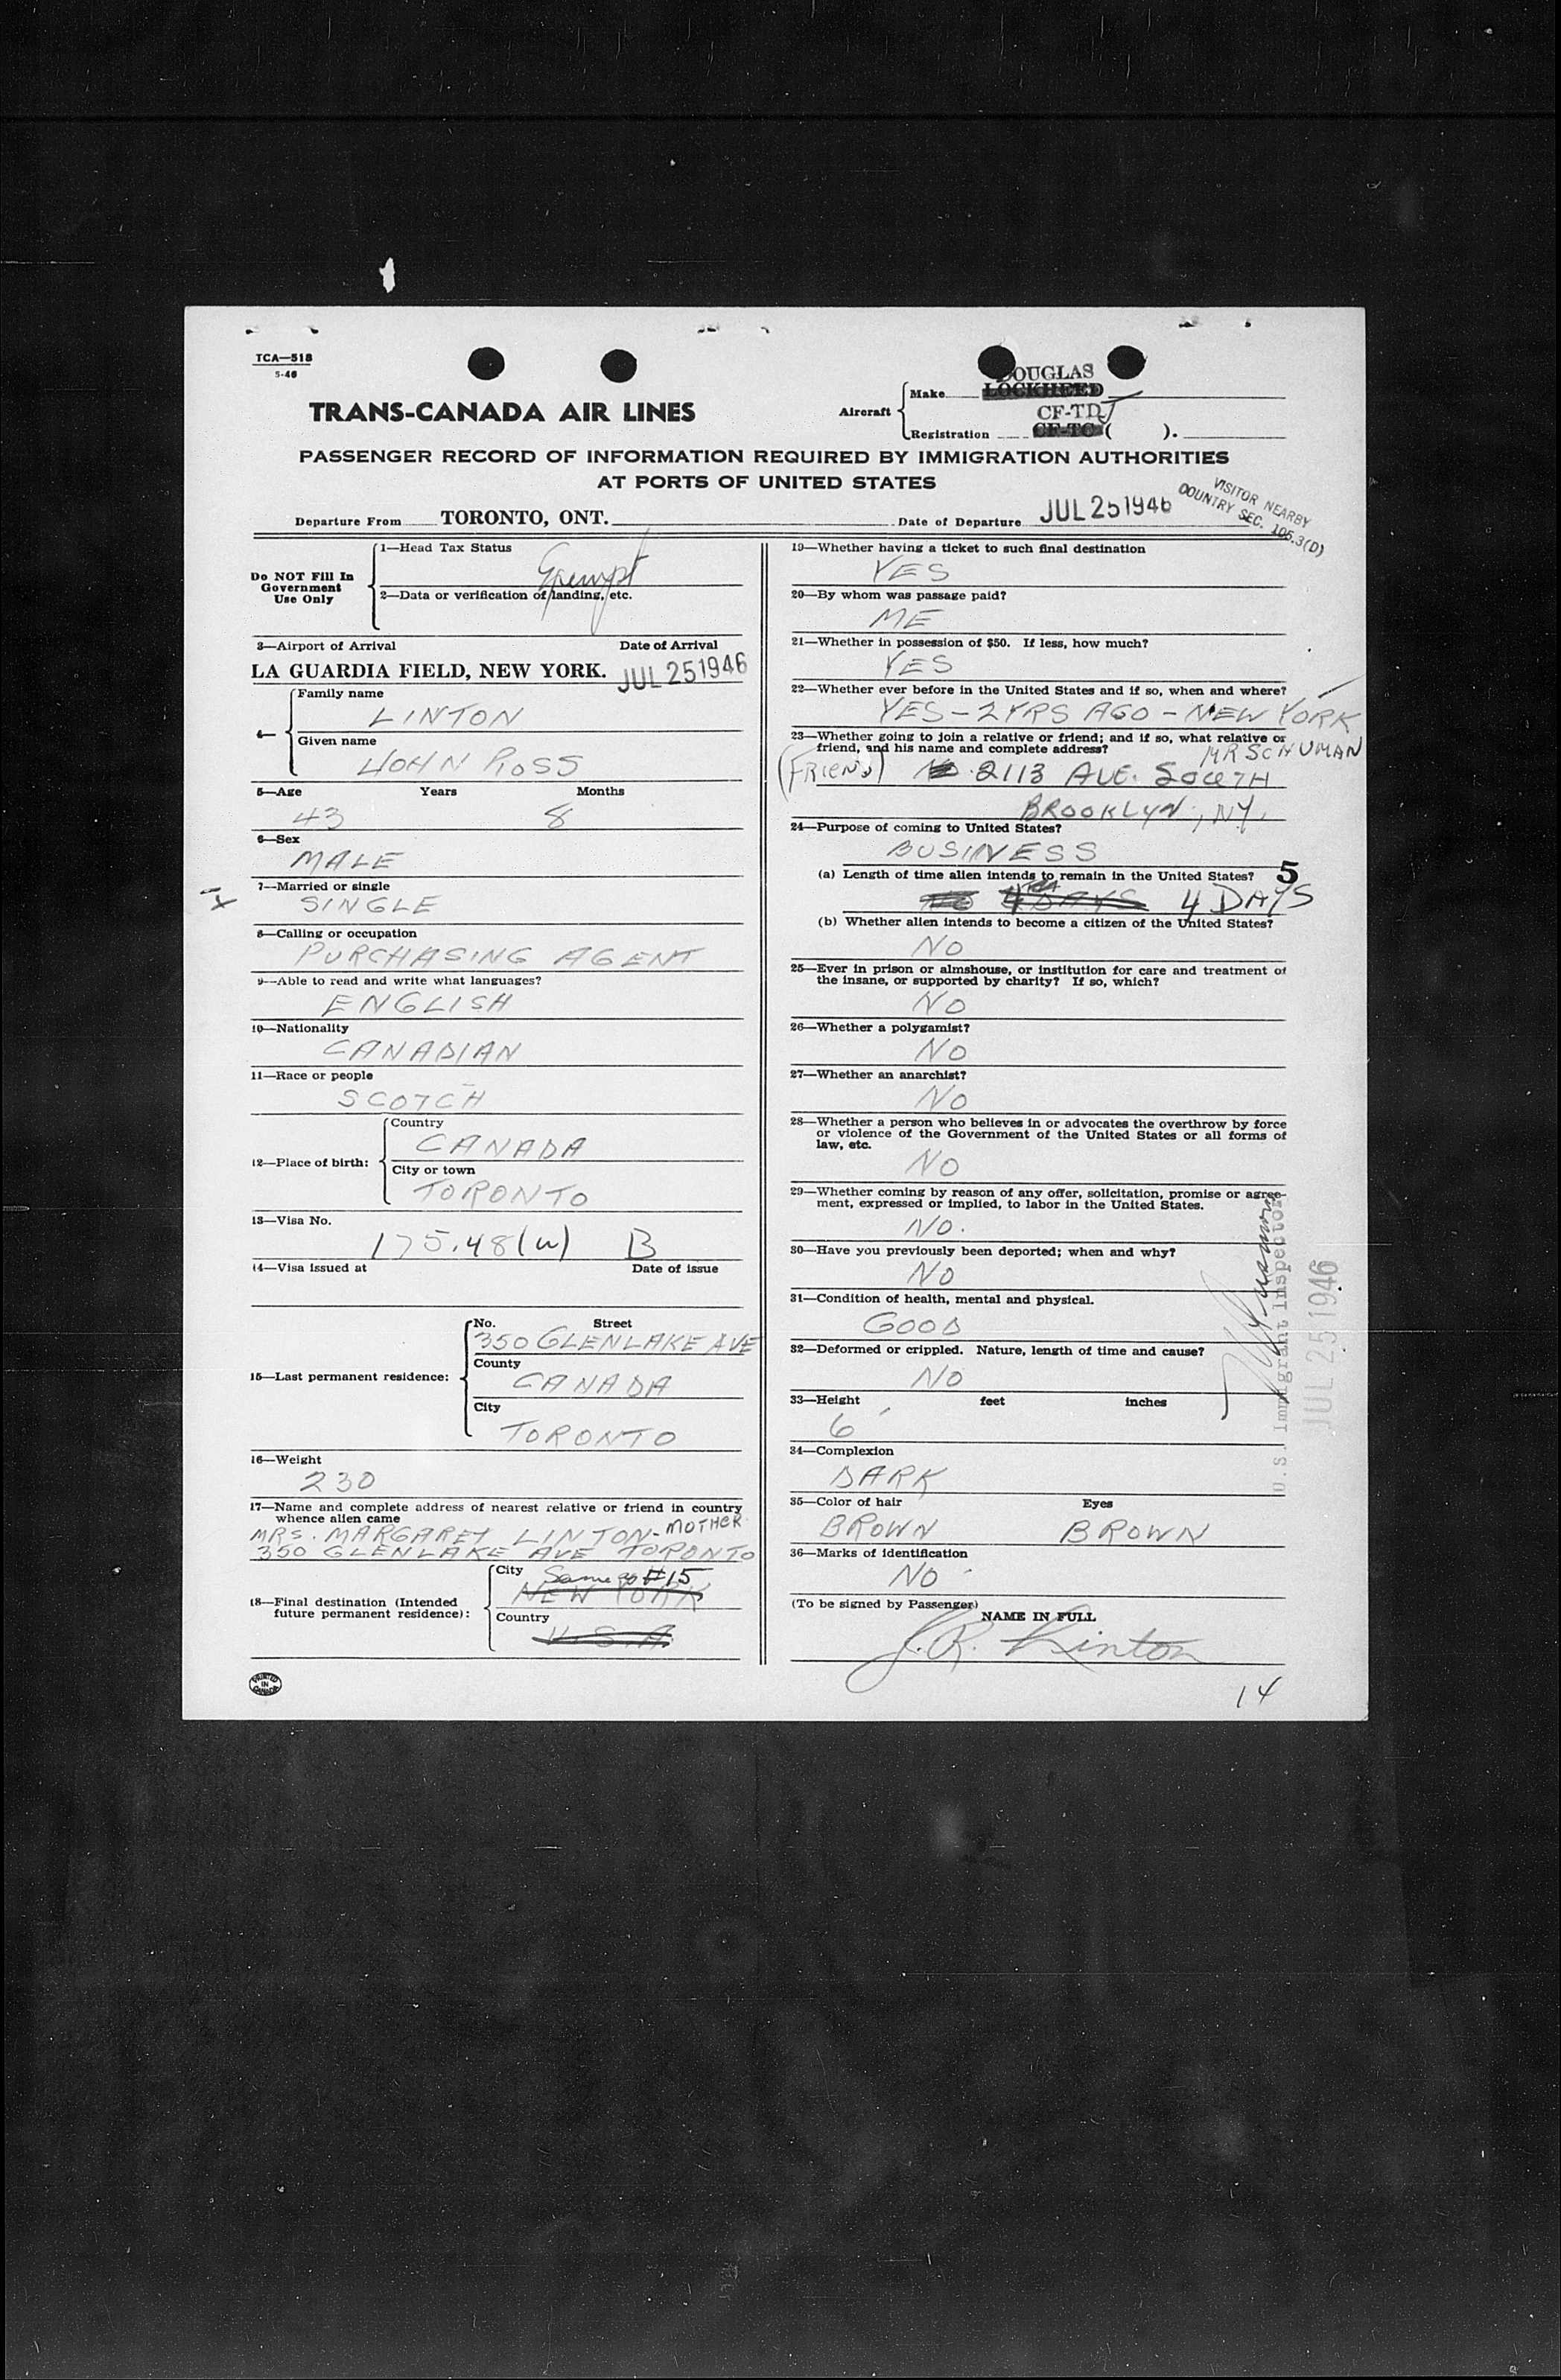 TCA—518
5-46
TRANS-CANADA AIR LINES
Aircraft
Make
DOUGLAS
LOCKHEED
CF-TDJ
Registration CF-TC ( ).
PASSENGER RECORD OF INFORMATION REQUIRED BY IMMIGRATION AUTHORITIES
AT PORTS OF UNITED STATES
VISITOR NEARBY
COUNTRY SEC. 105.3(D)
Departure From TORONTO, ONT. Date of Departure JUL 25 1946
Do NOT Fill In
Government
Use Only
1—Head Tax Status
Exempt
2—Data or verification of landing, etc.
3—Airport of Arrival Date of Arrival
LA GUARDIA FIELD, NEW YORK. JUL 25 1946
4—
Family name
LINTON
Given name
JOHN ROSS
5—Age Years Months
43 8
6—Sex
MALE
7—Married or single
SINGLE
14
8—Calling or occupation
PURCHASING AGENT
9—Able to read and write what languages?
ENGLISH
10—Nationality
CANADIAN
11—Race or people
SCOTCH
12—Place of birth:
Country
CANADA
City or town
TORONTO
13—Visa No.
175.48(w) B
14—Visa issued at Date of issue
15—Last permanent residence:
No. Street
350 GLENLAKE AVE
County
CANADA
City
TORONTO
16—Weight
230
17—Name and complete address of nearest relative or friend in country
whence alien came
MRS. MARGARET LINTON - MOTHER
350 GLENLAKE AVE TORONTO
18—Final destination (Intended
future permanent residence):
City Same as #15
NEW YORK
Country
U.S.A.
PRINTED
IN
CANADA
19—Whether having a ticket to such final destination
YES
20—By whom was passage paid?
ME
21—Whether in possession of $50. If less, how much?
YES
22—Whether ever before in the United States and if so, when and where?
YES - 2 YRS AGO - NEW YORK
23—Whether going to join a relative or friend; and if so, what relative or
friend, and his name and complete address?
MR SCHUMAN
(FRIEND) NO. 2113 AVE. SOUTH
BROOKLYN, NY.
24—Purpose of coming to United States?
BUSINESS
(a) Length of time alien intends to remain in the United States? 5
4 DAYS 4 DAYS
(b) Whether alien intends to become a citizen of the United States?
NO
25—Ever in prison or almshouse, or institution for care and treatment of
the insane, or supported by charity? If so, which?
NO
26—Whether a polygamist?
NO
27—Whether an anarchist?
NO
28—Whether a person who believes in or advocates the overthrow by force
or violence of the Government of the United States or all forms of
law, etc.
NO
29—Whether coming by reason of any offer, solicitation, promise or agree-
ment, expressed or implied, to labor in the United States.
NO.
30—Have you previously been deported; when and why?
NO
31—Condition of health, mental and physical.
GOOD
32—Deformed or crippled. Nature, length of time and cause?
NO
33—Height feet inches
6'
34—Complexion
DARK
35—Color of hair Eyes
BROWN BROWN
36—Marks of identification
NO
U.S. Immigrant Inspector
JUL 25 1946
(To be signed by Passenger)
NAME IN FULL
J.R. Linton
14